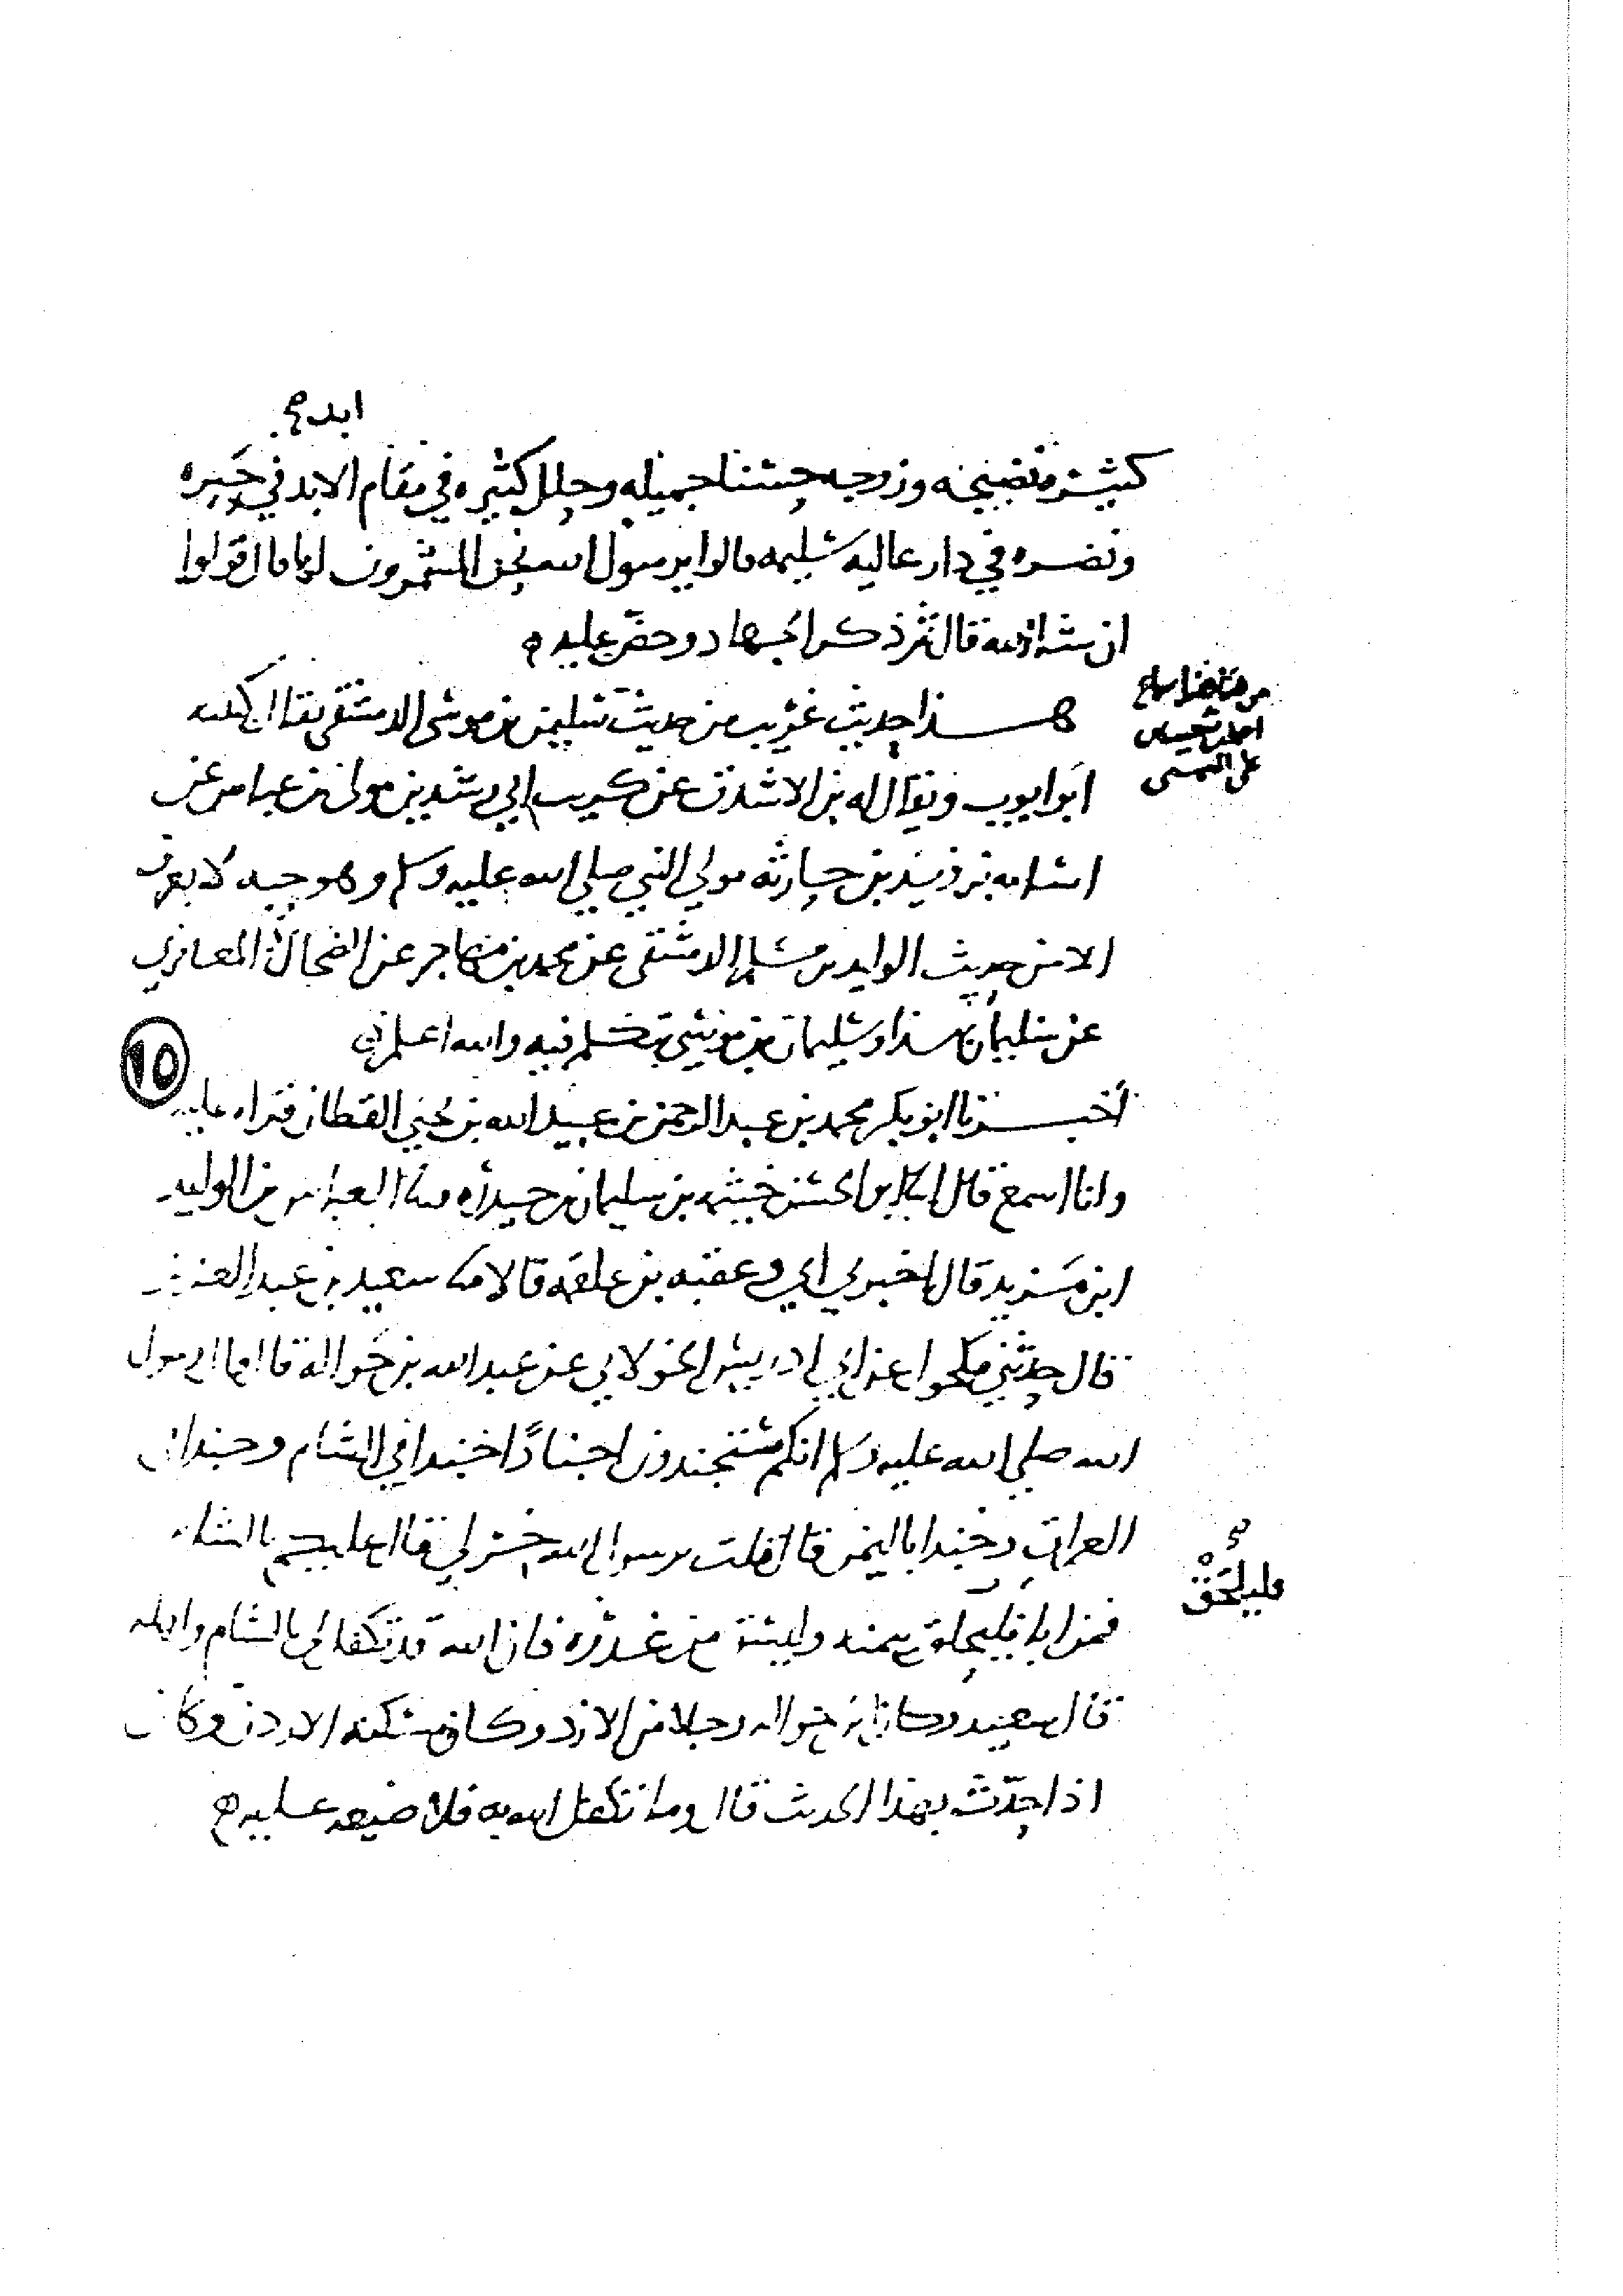 ابدا
كثيرة نضيجه وزوجه حسنا جميله وحلل كثيره في مقام الابد في حبره
ونضره في دار عاليه سليمه قالوا يرسول الله نحن المشمرون لها قال قولوا
ان شا الله قال ثم ذكر الجهاد وحض عليه
هذا حديث غريب من حديث سليمن بن موسى الدمشقي يقال كنيته
ابو ايوب ويقال له بن الاشدق عن كريب ابي رشدين مولى بن عباس عن
اسامه بن زيد بن حارثه مولي النبي صلي الله عليه وسلم وهو حبه لا يعرف
الا من حديث الوليد بن مسلم الدمشقي عن محمد بن مهاجر عن الضحاك المعافري
عن سليمان هذا وسليمان بن موسي تكلم فيه والله اعلم
١٥
أخبرنا ابو بكر محمد بن عبد الرحمن بن عبيد الله بن يحيي القطان قراه عليه
وانا اسمع قال ابو الحسن خيثمه بن سليمان بن حيدره العباس بن الوليد
ابن مزيد قال اخبرني ابي وعقبه بن علقمه قالا سعيد بن عبد العزيز
قال حدثني مكحول عن ابي ادريس الخولاني عن عبد الله بن حواله قال قال رسول
الله صلي الله عليه وسلم انكم ستجندون اجنادًا جندا في الشام وجندا في
العراق وجندا باليمن قال قلت يرسول الله خر لي قال عليكم بالشام
فمن ابا فليلحق بيمنه وليسق من غدره فان الله قد تكفل لي بالشام واهله
فليلحَقْ
قال سعيد وكان بن حواله رجلا من الازد وكان مسكنه الاردن وكان
اذا حدّث بهذا الحديث قال وما تكفل الله به فلا ضيعه عليه